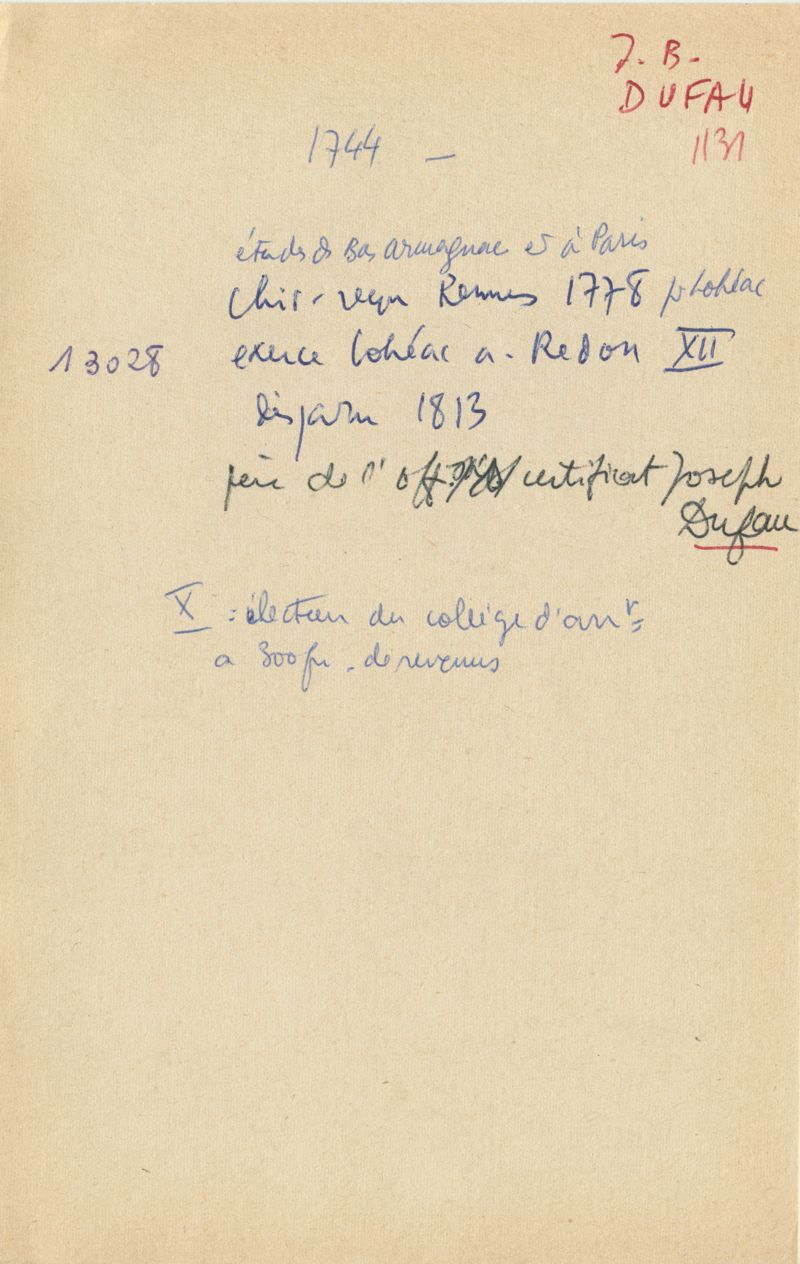 J. B.
DUFAU
1131
1744 —
études ds Bas Armagnac et à Paris
Chir. reçu Rennes 1778 pr Lohéac
13028 exerce Lohéac a. Redon XII
disparu 1813
père de l'off. certificat Joseph
Dufau
X = électeur du collège d'arrt
a 300 fr. de revenus